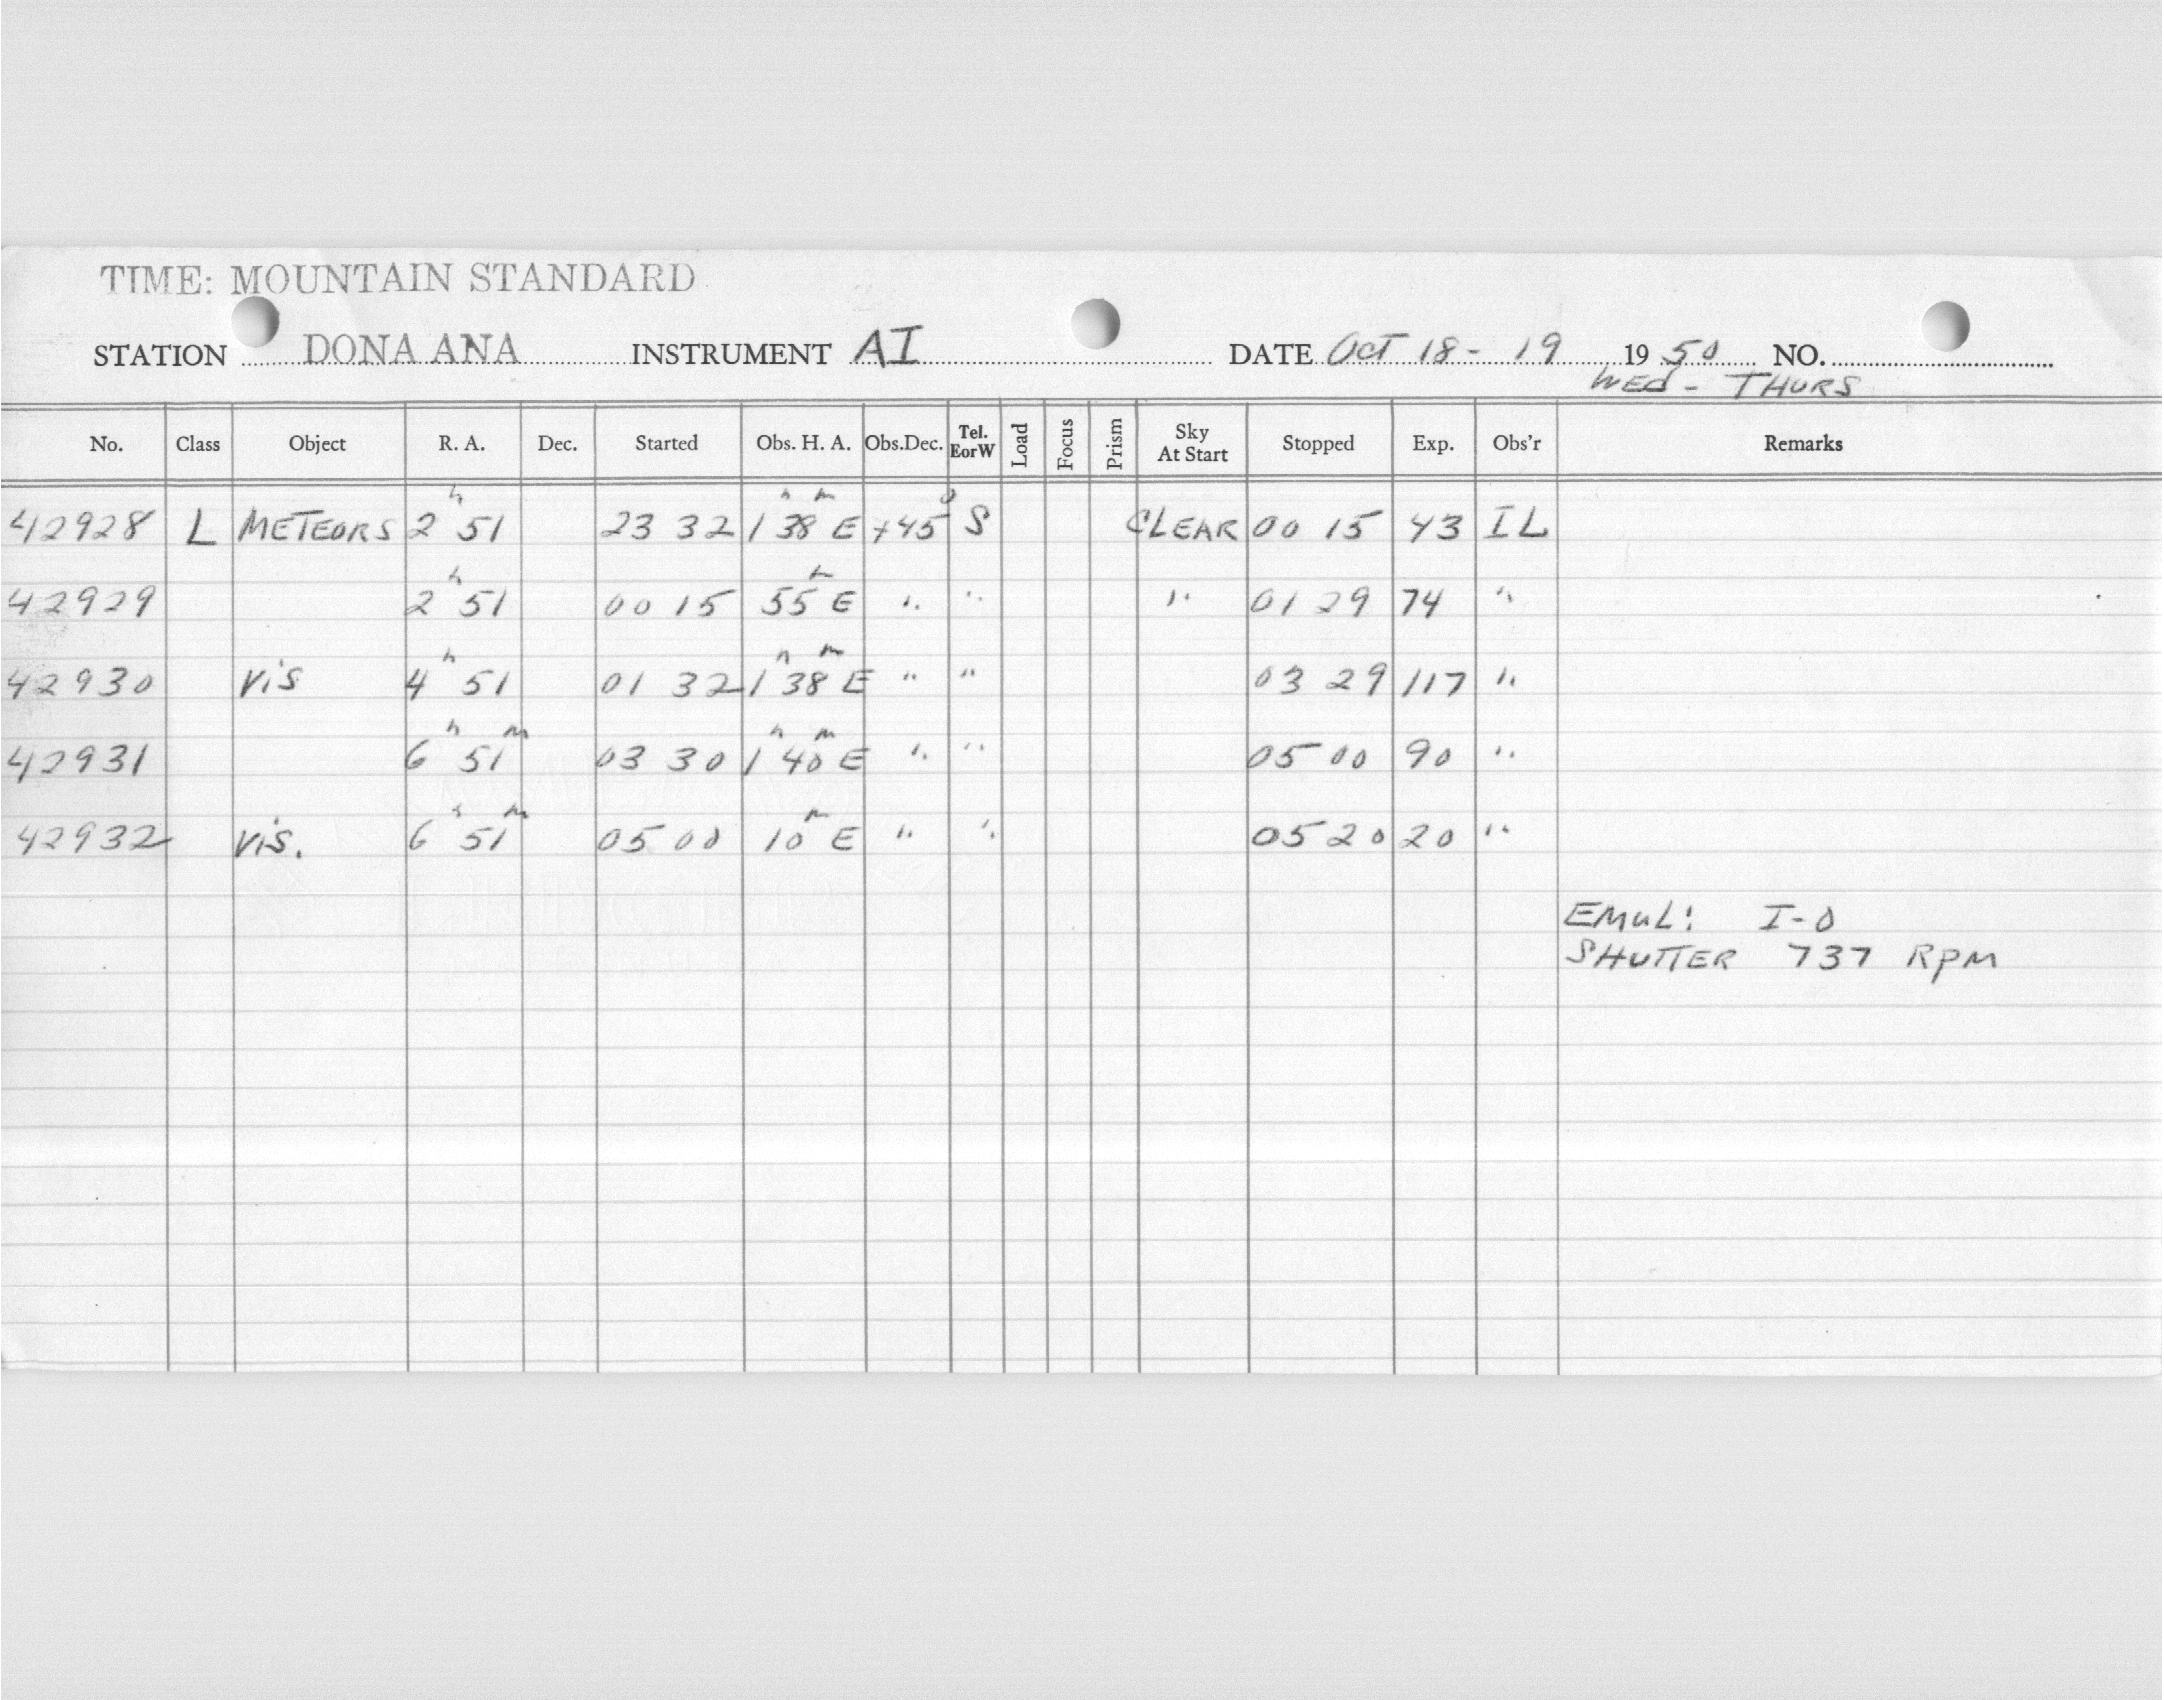 TIME: MOUNTAIN STANDARD
STATION DONA ANA INSTRUMENT AI DATE Oct 18 - 19 1950 NO.
WED - THURS
No. Class Object R. A. Dec. Started Obs. H. A. Obs.Dec. Tel. EorW Load Focus Prism Sky At Start Stopped Exp. Obs'r Remarks
42928 L METEORS 2h 51 23 32 1h 38m E +45° S CLEAR 00 15 43 IL
42929 2h 51 00 15 55m E " " " 01 29 74 "
42930 Vis 4h 51 01 32 1h 38m E " " 03 29 117 "
42931 6h 51m 03 30 1h 40m E " " 05 00 90 "
42932 Vis. 6h 51m 05 00 10m E " " 05 20 20 "
EMUL: I-O
SHUTTER 737 RPM